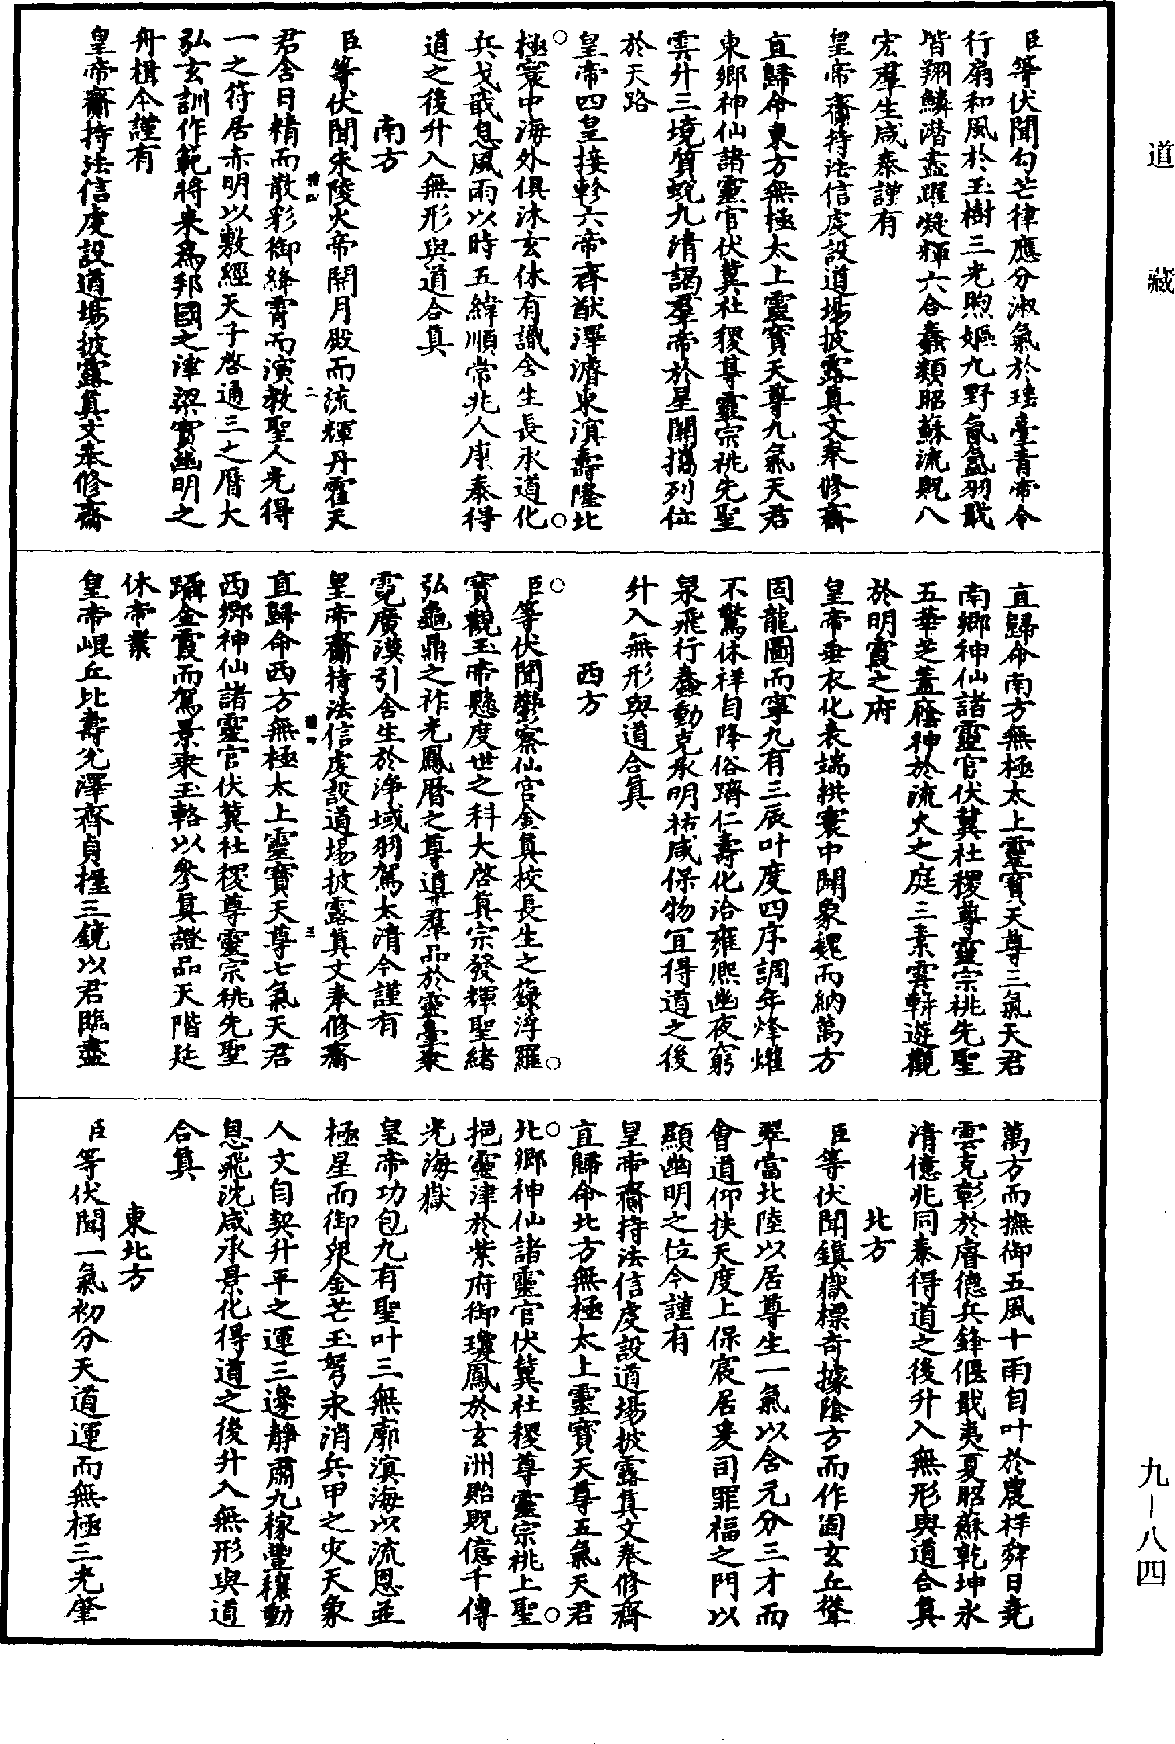 道藏
臣等伏聞勾芒律應分淑氣於瑤臺青帝令
行扇和風於玉樹三光煦嫗九野氤氳羽戢
皆翔鱗潛盡躍凝輝六合蠢類昭蘇流貺八
宏羣生咸泰謹有
皇帝齋持法信虔設道場披露真文奉修齋
直歸命東方無極太上靈寶天尊九氣天君
東鄉神仙諸靈官伏冀社稷尊靈宗祧先聖
雲升三境質蛻九清謁羣帝於星關揖列位
於天路
皇帝四皇接軫六帝齊猷澤濟東溟壽隆北
極寰中海外俱沐玄休有識含生長承道化
兵戈戢息風雨以時五緯順常兆人康泰得
道之後升入無形與道合真
南方
臣等伏聞朱陵火帝開月殿而流輝丹霍天
君含日精而散彩御絳霄而演教聖人先得
一之符居赤明以敷經天子啓通三之曆大
弘玄訓作範將來為邦國之津梁實幽明之
舟檝今謹有
皇帝齋持法信虔設道場披露真文奉修齋
直歸命南方無極太上靈寶天尊三氣天君
南鄉神仙諸靈官伏冀社稷尊靈宗祧先聖
五華芝蓋蔭神於流火之庭三素雲軿遊觀
於明霞之府
皇帝垂衣化表端拱寰中闢象魏而納萬方
固龍圖而寧九有三辰叶度四序調年烽燧
不驚休祥自降俗躋仁壽化洽雍熙幽夜窮
泉飛行蠢動克承明祐咸保物宜得道之後
升入無形與道合真
西方
臣等伏聞鬱察仙宮金真校長生之籙浮羅
寶觀玉帝懸度世之科大啓真宗發輝聖緒
弘龜鼎之祚光鳳曆之尊導羣品於靈臺聚
霓廣漠引含生於淨域羽駕太清今謹有
皇帝齋持法信虔設道場披露真文奉修齋
直歸命西方無極太上靈寶天尊七氣天君
西鄉神仙諸靈官伏冀社稷尊靈宗祧先聖
躡金霞而駕景乘玉輅以參真證品天階延
休帝業
皇帝崐丘比壽光澤齊貞握三鏡以君臨盡
萬方而撫御五風十雨自叶於農祥舜日堯
雲克彰於睿德兵鋒偃戢夷夏昭蘇乾坤永
清億兆同泰得道之後升入無形與道合真
北方
臣等伏聞鎮嶽標奇據陰方而作固玄丘聳
翠當北陸以居尊生一氣以含元分三才而
會道仰扶天度上保宸居爰司罪福之門以
顯幽明之位今謹有
皇帝齋持法信虔設道場披露真文奉修齋
直歸命北方無極太上靈寶天尊五氣天君
北鄉神仙諸靈官伏冀社稷尊靈宗祧上聖
挹靈津於紫府御瓊鳳於玄洲貽貺億千傳
光海嶽
皇帝功包九有聖叶三無廓滇海以流恩並
極星而御衆金芒玉弩永消兵甲之灾天象
人文自契升平之運三邊靜肅九稼豐穰動
息飛沈咸承景化得道之後升入無形與道
合真
東北方
臣等伏聞一氣初分天道運而無極三光肇
九－八四